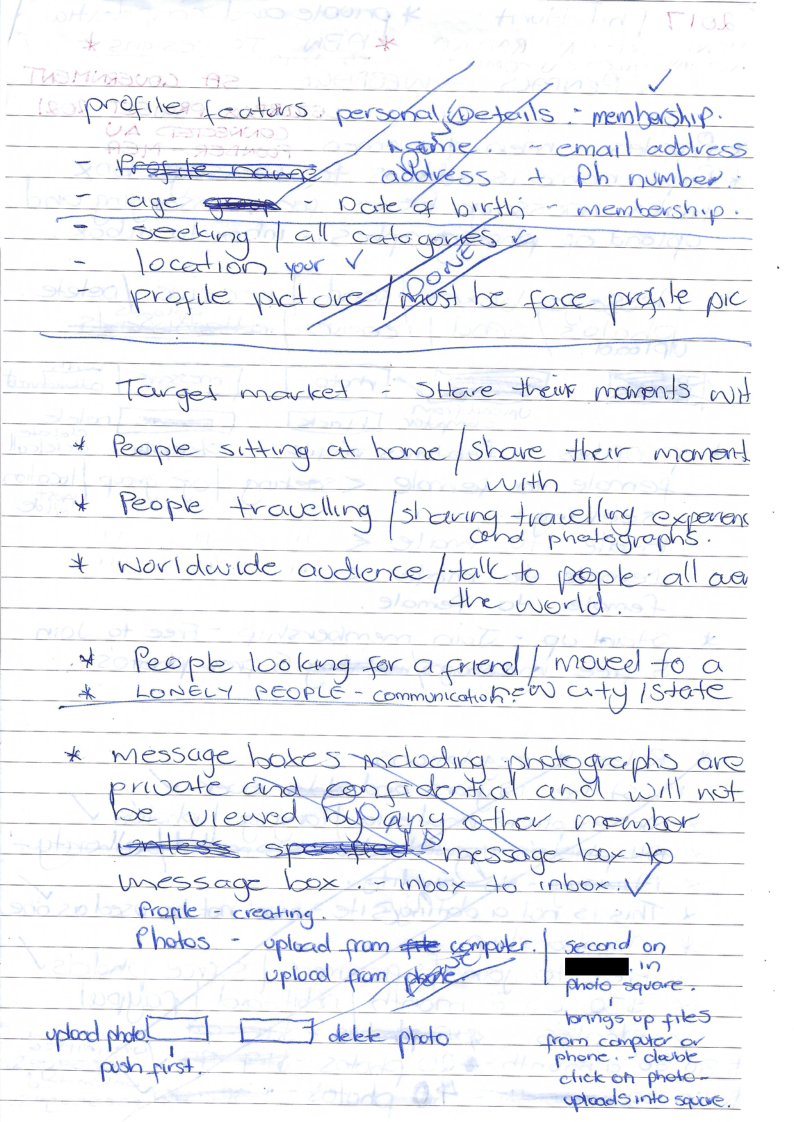 profile featurs. personal Details - membership.
name. - email address
- Profile name address + Ph number.
- age group - Date of birth - membership.
- seeking / all catagories ✓
- location your ✓
DONE
- profile picture / must be face profile pic
Target market - SHare their moments wit
* People sitting at home / Share their moment
with
* People travelling / sharing travelling experienc
and photographs.
* worldwide audience / talk to people all over
the world.
* People looking for a friend / moved to a
* LONELY PEOPLE - communication. new city / state
* message boxes including photographs are
private and confidential and will not
be viewed by any other member
unless specified message box to
message box. - inbox to inbox. ✓
Profile - creating.
Photos - upload from file computer.
upload from phone.
second on
in
photo square.
brings up files
from computer or
phone. - double
click on photo -
uploads into square.
upload photo! delete photo
push first.